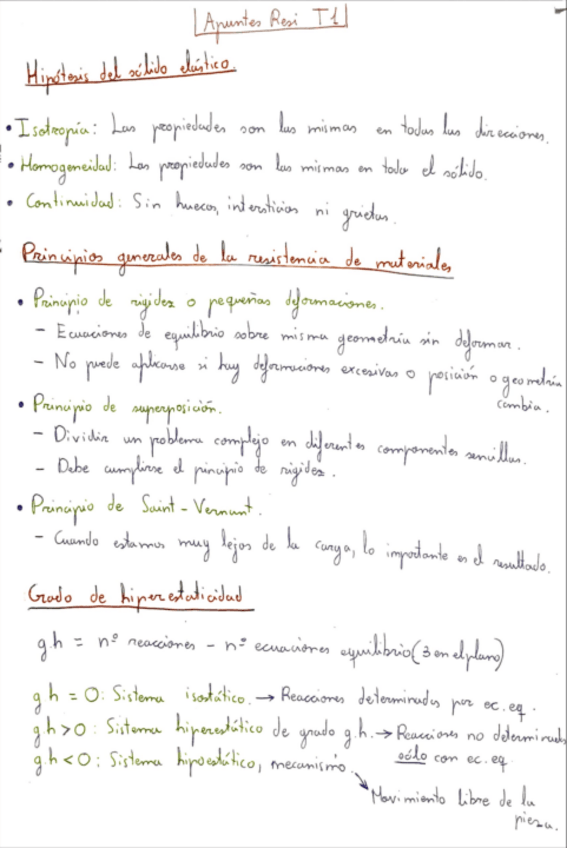 Apuntes Resi T1
Hipótesis del sólido elástico.
• Isotropía: Las propiedades son las mismas en todas las direcciones.
• Homogeneidad: Las propiedades son las mismas en todo el sólido.
• Continuidad: Sin huecos, intersticios ni grietas.
Principios generales de la resistencia de materiales
• Principio de rigidez o pequeñas deformaciones.
- Ecuaciones de equilibrio sobre misma geometría sin deformar.
- No puede aplicarse si hay deformaciones excesivas o posición o geometría
cambia.
• Principio de superposición.
- Dividir un problema complejo en diferentes componentes sencillas.
- Debe cumplirse el principio de rigidez.
• Principio de Saint-Vernant.
- Cuando estamos muy lejos de la carga, lo importante es el resultado.
Grado de hiperestaticidad
g.h = nº reacciones - nº ecuaciones equilibrio (3 en el plano)
g.h = 0: Sistema isostático. → Reacciones determinadas por ec. eq.
g.h > 0: Sistema hiperestático de grado g.h. → Reacciones no determinadas
sólo con ec. eq.
g.h < 0: Sistema hipoestático, mecanismo.
→ Movimiento libre de la
pieza.